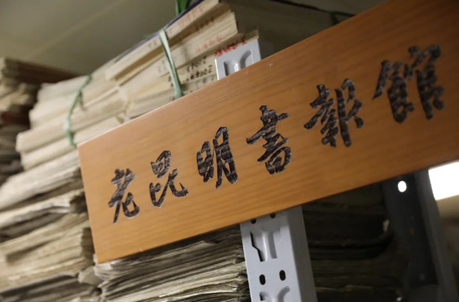 老昆明書報館